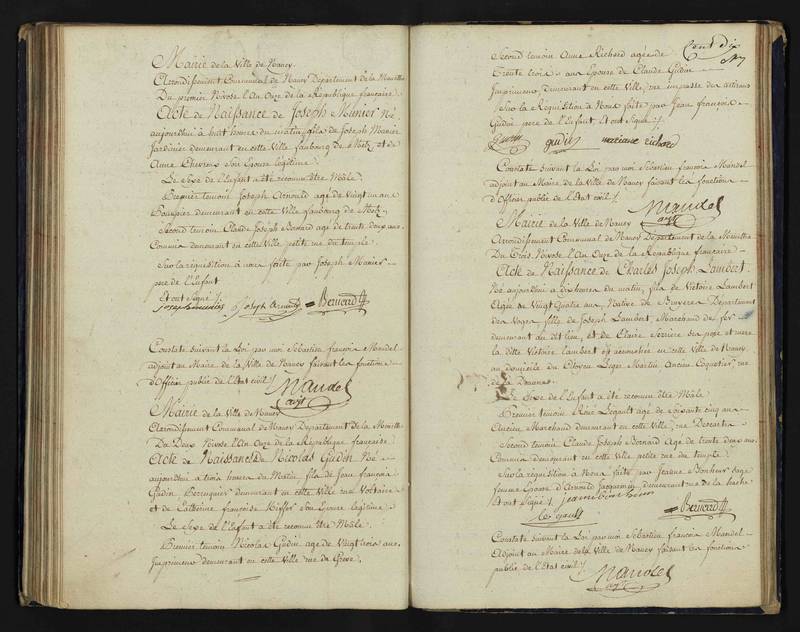 Mairie de la Ville de Nancy.
Arrondissement Communal de Nancy Departement de la Meurthe
Du premier Nivose l'An Onze de la Republique française
Acte de Naissance de Joseph Munier Né
aujourdhui à huit heures du matin, fils de Joseph Munier
Jardinier demeurant en cette Ville faubourg de Metz, et de
Anne Son Epouse légitime
Le Sexe de l'Enfant a été reconnu être Mâle.
Premier temoin Joseph Arnould agé de Vingt un ans
demeurant en cette Ville faubourg de Metz
Second temoin Claude Joseph Bernard agé de trente deux ans
Commis demeurant en cette Ville petite rue du temple
Sur la réquisition à nous faite par Joseph Munier
pere de l'Enfant
Et ont Signé /.
Joseph Arnould Bernard
Constaté suivant la Loi par moi Sébastien françois Mandel
adjoint au Maire de la Ville de Nancy faisant les fonctions
d'Officier public de l'Etat civil /.
Mandel
adjt
Mairie de la Ville de Nancy
Arrondissement Communal de Nancy Departement de la Meurthe
Du Deux Nivose l'An Onze de la Republique française
Acte de Naissance de Nicolas Gudin Né
aujourdhui a trois heures du Matin, fils de Jean françois
Gudin Perruquier demeurant en cette Ville rue Voltaire
et de Catherine françoise Son Epouse légitime
Le Sexe de l'Enfant a été reconnu être Mâle.
Premier temoin Nicolas Gudin agé de Vingt trois ans
Imprimeur demeurant en cette Ville rue de Grève.
Cent dix
Second temoin Anne Richard agée de
trente trois ans Epouse de Claude Gudin
Imprimeur demeurant en cette Ville, rue impasse des artisans
Sur la Réquisition à Nous faite par Jean françois
Gudin pere de l'Enfant Et ont Signé /.
gudin mariane richard
Constaté suivant la Loi par moi Sébastien françois Mandel
adjoint au Maire de la Ville de Nancy faisant les fonctions
d'Officier public de l'Etat civil /.
Mandel
adjt
Mairie de la Ville de Nancy
Arrondissement Communal de Nancy Departement de la Meurthe
Du Trois Nivose l'An Onze de la Republique française
Acte de Naissance de Charles Joseph Lambert
Né aujourdhui a Six heures du matin, fils de Victoire Lambert
Agée de Vingt Quatre ans Native de Bruyeres Departement
des Vosges, fille de Joseph Lambert, Marchand de fer
demeurant au dit lieu, et de Claire ses pere et mere
la ditte Victoire Lambert est accouchée en cette Ville de Nancy
au domicile du Citoyen Leger Martin Ancien Coquetier rue
de la Douane
Le Sexe de l'Enfant a été reconnu être Mâle
Premier temoin René Legault agé de Soixante cinq ans
Ancien Marchand demeurant en cette Ville, rue Descartes
Second temoin Claude Joseph Bernard Agé de trente deux ans
Commis demeurant en cette Ville petite rue du temple
Sur la réquisition à Nous faite par Jeanne Bonheur Sage
femme Epouse d'Arnould Jacquemin, demeurant rue de la hache
Et ont Signé /.
Bernard
Constaté suivant la Loi par moi Sébastien françois Mandel
Adjoint au Maire de la Ville de Nancy faisant les fonctions
public de l'Etat civil /.
Mandel
adjt